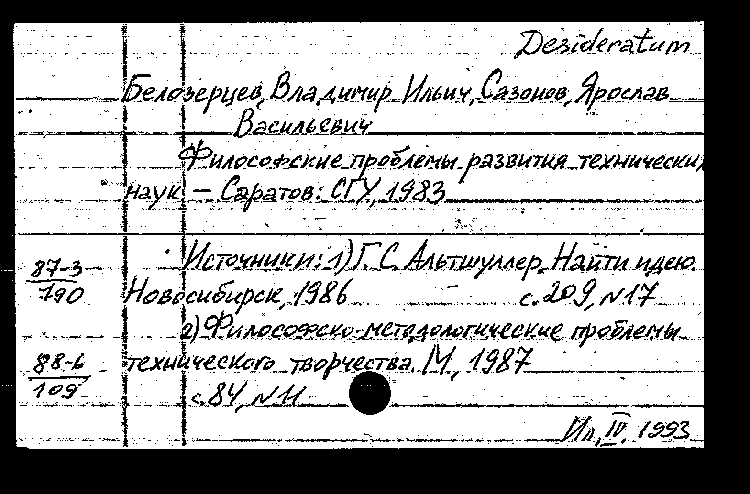 Desideratum
Белозерцев, Владимир Ильич, Сазонов, Ярослав
Васильевич
Философские проблемы развития технических
наук — Саратов: СГУ, 1983
Источники: 1) Г. С. Альтшуллер. Найти идею.
87-3
790
Новосибирск, 1986 с. 209, N17
2) Философско-методологические проблемы
88-6
109
технического творчества. М., 1987
с. 84, N11
IV. 1993